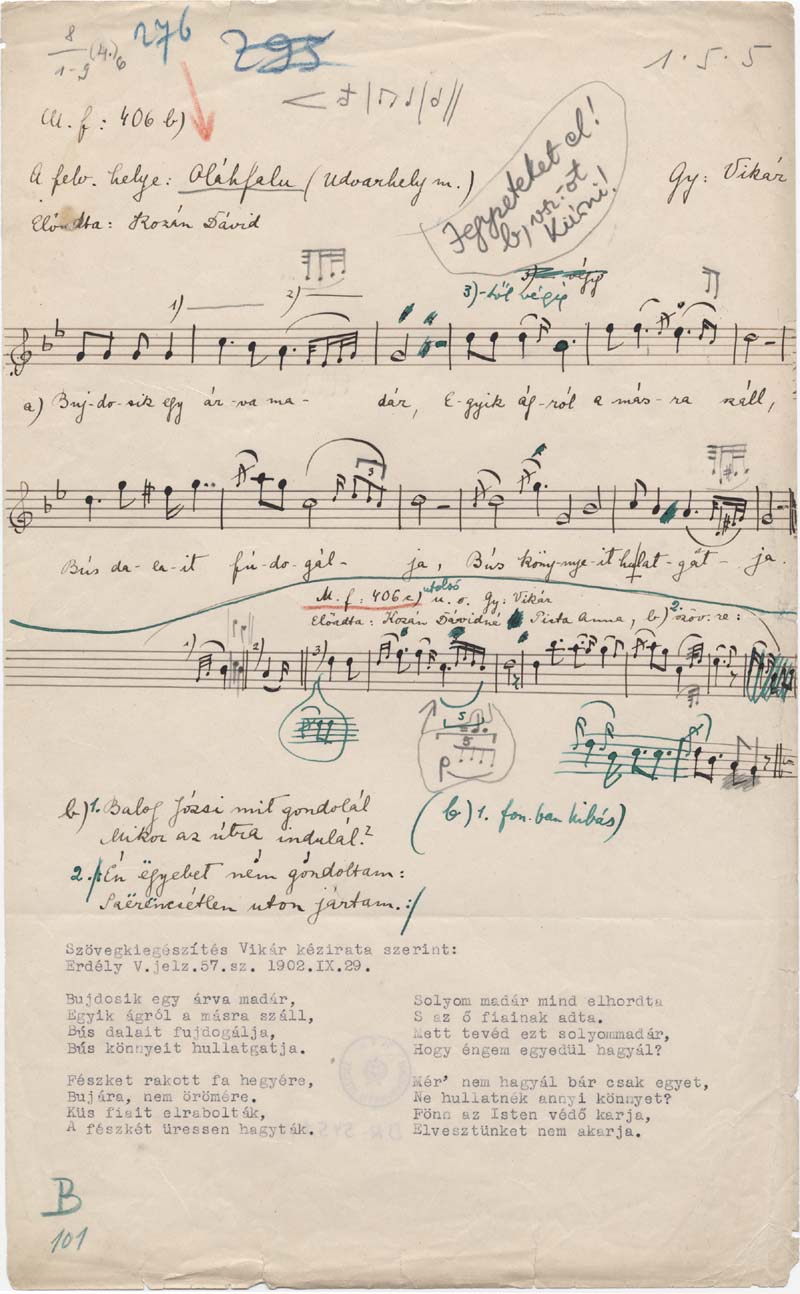 8/1-9 (4.)6 276 295 1.5.5
M. f: 406 b)
A felv. helye: Oláhfalu (Udvarhely m.) Gy: Vikár
Előadta: Kozán Dávid
Jegyzeteket el!
b) vsz.-ot
Kiírni!
1) 2) 3)-tól végig
a) Buj-do-sik egy ár-va ma- dár, E-gyik ág-ról a más-ra száll,
3
Bús da-la-it fú-do-gál- ja, Bús köny-nye-it hullat-gat- ja.
M. f: 406 c) utolsó u. o. Gy: Vikár
Előadta: Kozán Dávidné Pista Anna, b) 2. szöv.-re:
1) 2) 3)
5
5
b) 1. Balog Józsi mit gondolál
Mikor az útra indulál?
(b) 1. fon.-ban hibás)
2. /: Én ëgyebet ném góndoltam:
Szërëncsétlen uton jártam. :/
Szövegkiegészítés Vikár kézirata szerint:
Erdély V.jelz.57.sz. 1902.IX.29.
Bujdosik egy árva madár,
Egyik ágról a másra száll,
Bús dalait fujdogálja,
Bús könnyeit hullatgatja.
Fészket rakott fa hegyére,
Bujára, nem örömére.
Küs fiait elrabolták,
A fészkét üressen hagyták.
Solyom madár mind elhordta
S az ő fiainak adta.
Mett tevéd ezt solyommadár,
Hogy éngem egyedül hagyál?
Mér' nem hagyál bár csak egyet,
Ne hullatnék annyi könnyet?
Fönn az Isten védő karja,
Elvesztünket nem akarja.
B
101